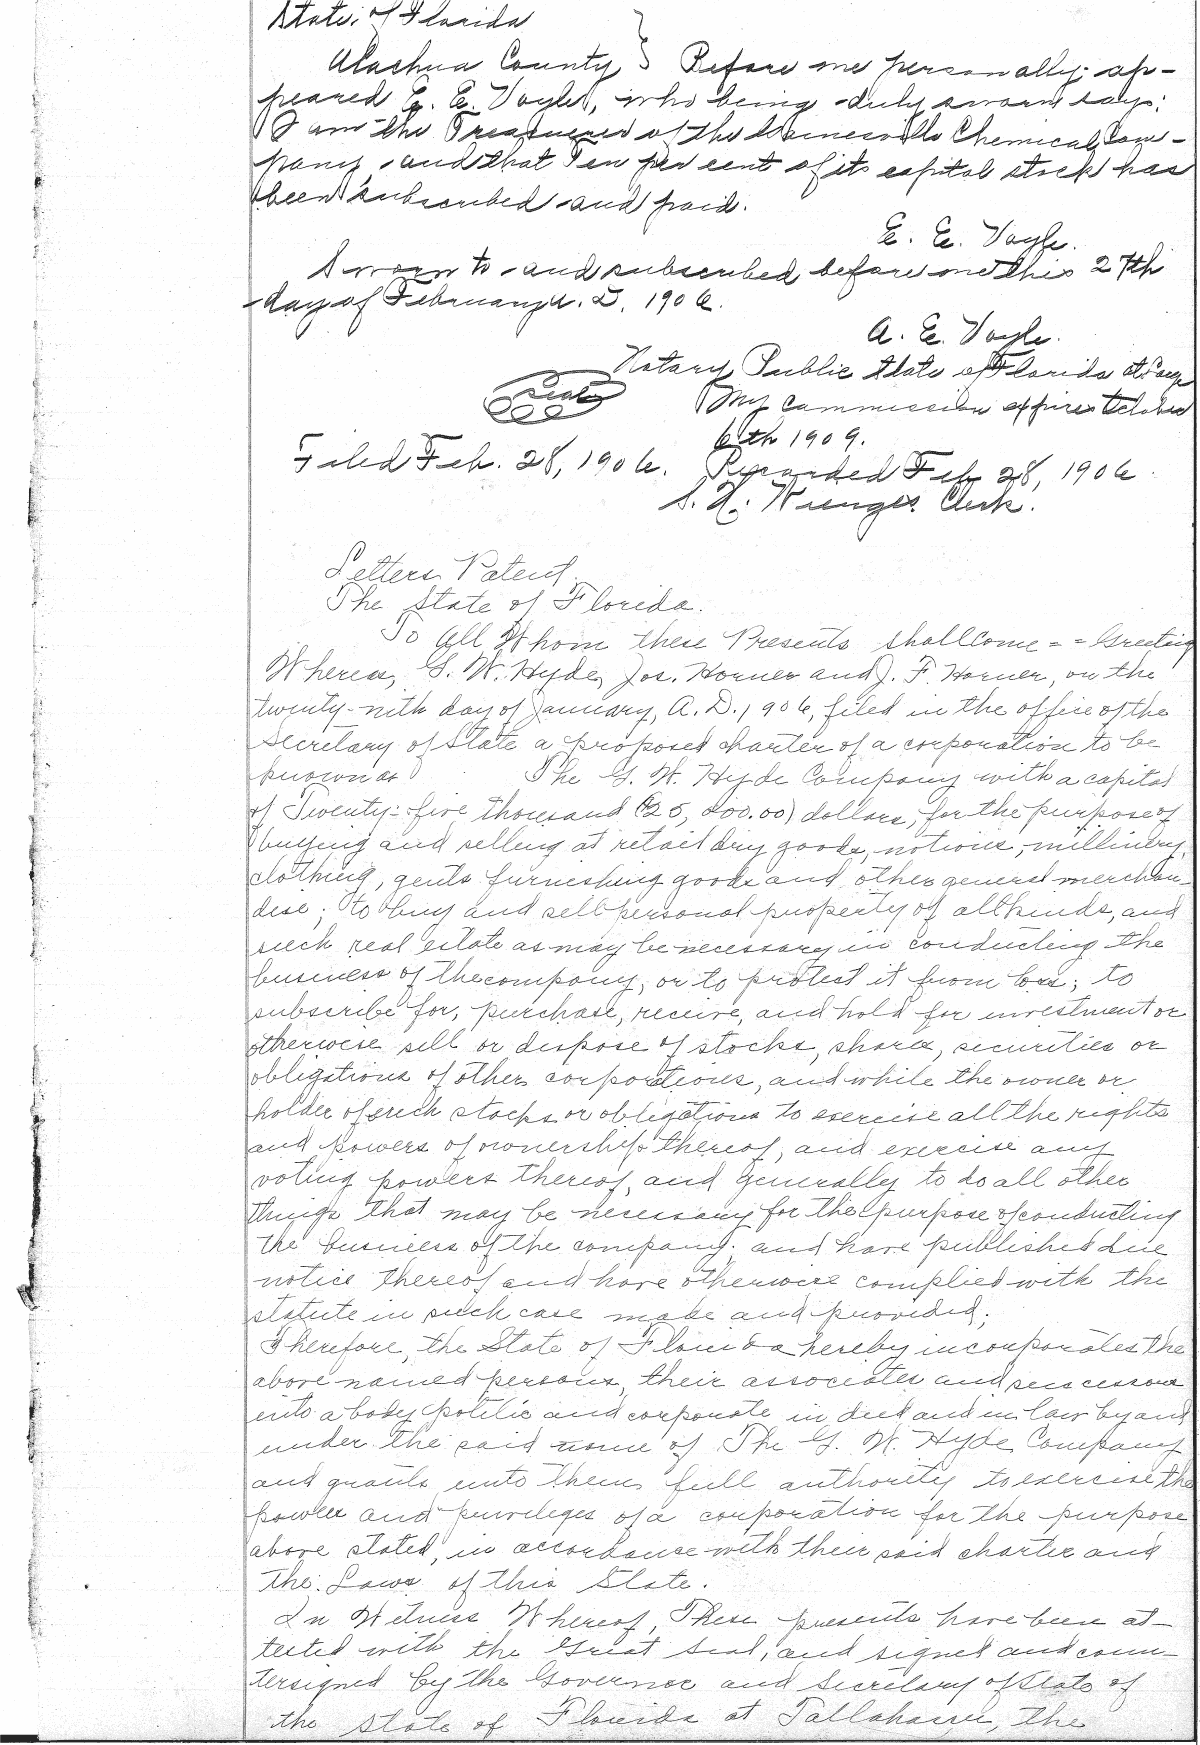 State of Florida
Alachua County } Before me personally ap-
peared E. E. Voyle, who being duly sworn says:
I am the Treasurer of the Gainesville Chemical Com-
pany, and that Ten per cent of its capital stock has
been subscribed and paid.
E. E. Voyle.
Sworn to and subscribed before me this 27th
day of February A. D. 1906.
A. E. Voyle.
Notary Public State of Florida at Large
Seal
My commission expires October
6th 1909.
Filed Feb. 28, 1906. Recorded Feb 28, 1906.
S. H. Wienges. Clerk.
Letters Patent.
The State of Florida.
To All Whom these Presents shall Come = = Greeting
Whereas, G. W. Hyde, Jos. Horner and J. F. Horner, on the
twenty-nith day of January, A. D. 1906, filed in the office of the
Secretary of State a proposed charter of a corporation to be
known as The G. W. Hyde Company with a capital
of Twenty-five thousand ($25,000.00) dollars, for the purpose of
buying and selling at retail dry goods, notions, millinery,
clothing, gents furnishing goods and other general merchan-
dise; to buy and sell personal property of all kinds, and
such real estate as may be necessary in conducting the
business of the company, or to protect it from loss; to
subscribe for, purchase, receive, and hold for investment or
otherwise sell or dispose of stocks, shares, securities or
obligations of other corporations, and while the owner or
holder of such stocks or obligations to exercise all the rights
and powers of ownership thereof, and exercise any
voting powers thereof, and generally to do all other
things that may be necessary for the purpose of conducting
the business of the company; and have published due
notice thereof and have otherwise complied with the
statute in such case made and provided;
Therefore, the State of Florida hereby incorporates the
above named persons, their associates and successors
into a body politic and corporate in deed and in law by and
under the said name of The G. W. Hyde Company
and grants unto them full authority to exercise the
powers and privileges of a corporation for the purpose
above stated, in accordance with their said charter and
the Laws of this State.
In Witness Whereof, These presents have been at-
tested with the Great Seal, and signed and coun-
tersigned by the Governor and Secretary of State of
the State of Florida at Tallahassee, the